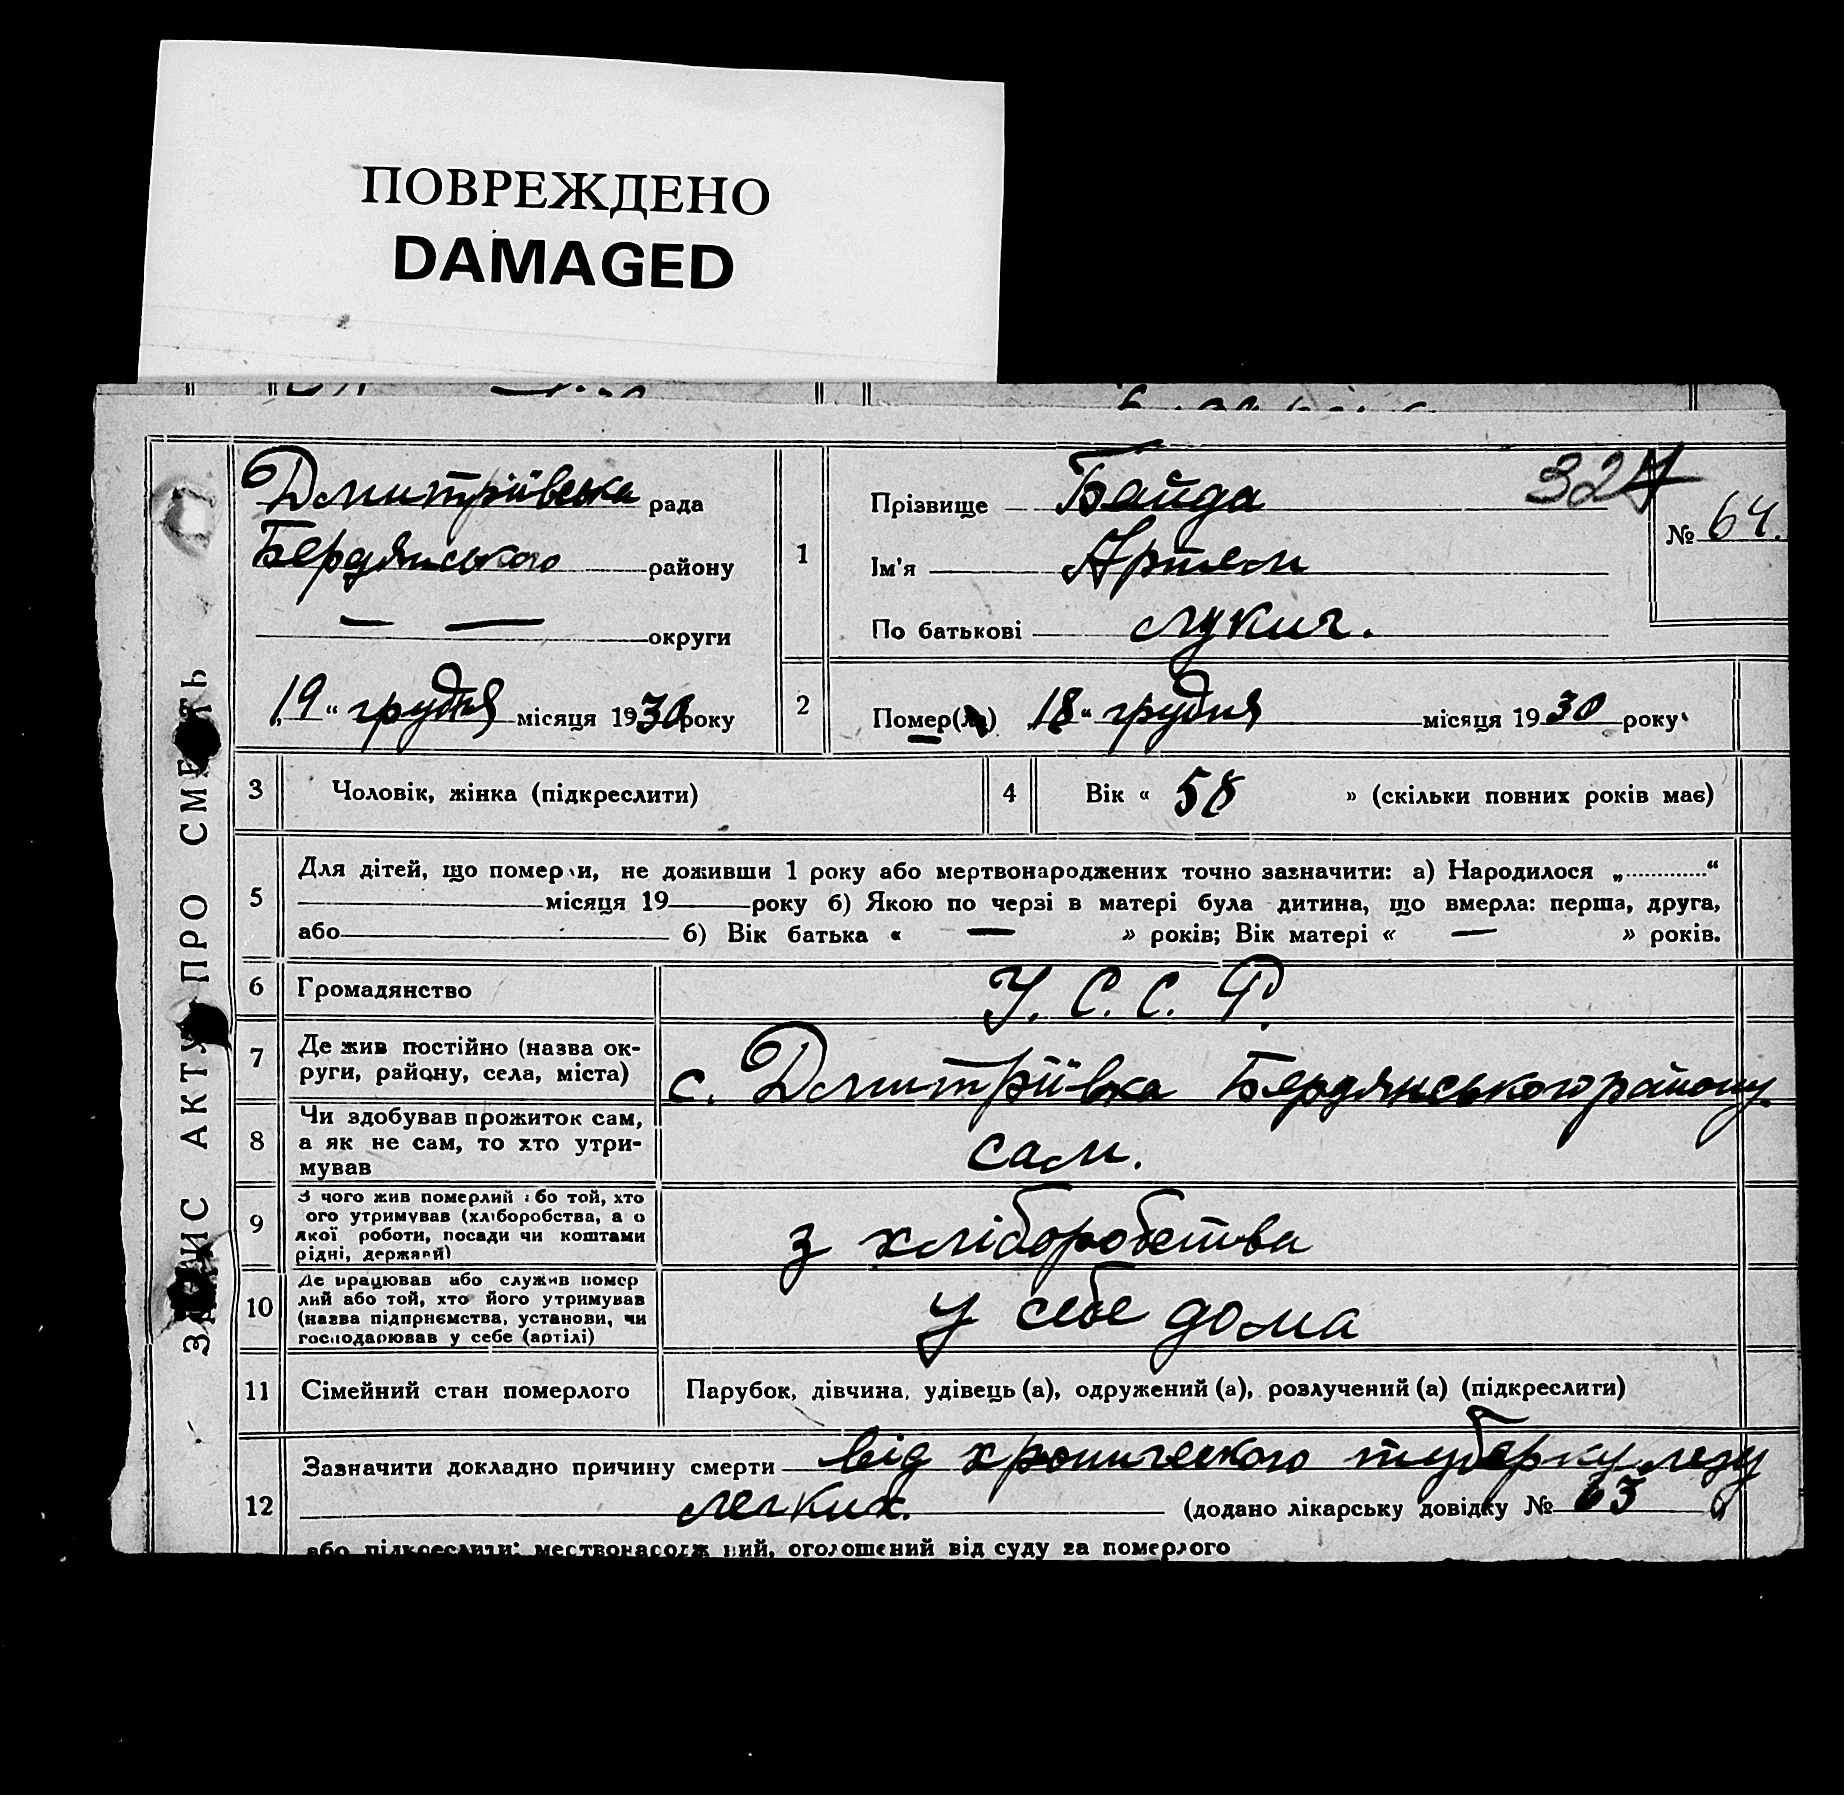 ПОВРЕЖДЕНО
DAMAGED
ЗАПИС АКТУ ПРО СМЕРТЬ
Дмитріївська рада
Бердянського району
— — округи
„19“ грудня місяця 1930 року
1
Прізвище Байда
Ім'я Артем
По батькові Лукич.
324
№ 64.
2
Помер(ла) 18“ грудня місяця 1930 року
3 Чоловік, жінка (підкреслити)
4 Вік « 58 » (скільки повних років має)
5 Для дітей, що померли, не доживши 1 року або мертвонароджених точно зазначити: а) Народилося „.............“
місяця 19 року б) Якою по черзі в матері була дитина, що вмерла: перша, друга,
або б) Вік батька « — » років; Вік матері « — » років.
6 Громадянство У. С. С. Р.
7 Де жив постійно (назва ок-
руги, району, села, міста) с. Дмитріївка Бердянського району.
8 Чи здобував прожиток сам,
а як не сам, то хто утри-
мував сам.
9 З чого жив померлий або той, хто
ого утримував (хліборобства, а о
якої роботи, посади чи коштами
рідні, держави) з хліборобства
10 Де працював або служив помер
лий або той, хто його утримував
(назва підприємства, установи, чи
господарював у себе (артілі) у себе дома
11 Сімейний стан померлого Парубок, дівчина, удівець (а), одружений (а), розлучений (а) (підкреслити)
12 Зазначити докладно причину смерти від хронического туберкулезу
легких. (додано лікарську довідку № 63
або підкреслити: мествонасодж ний, оголошений від суду за померлого